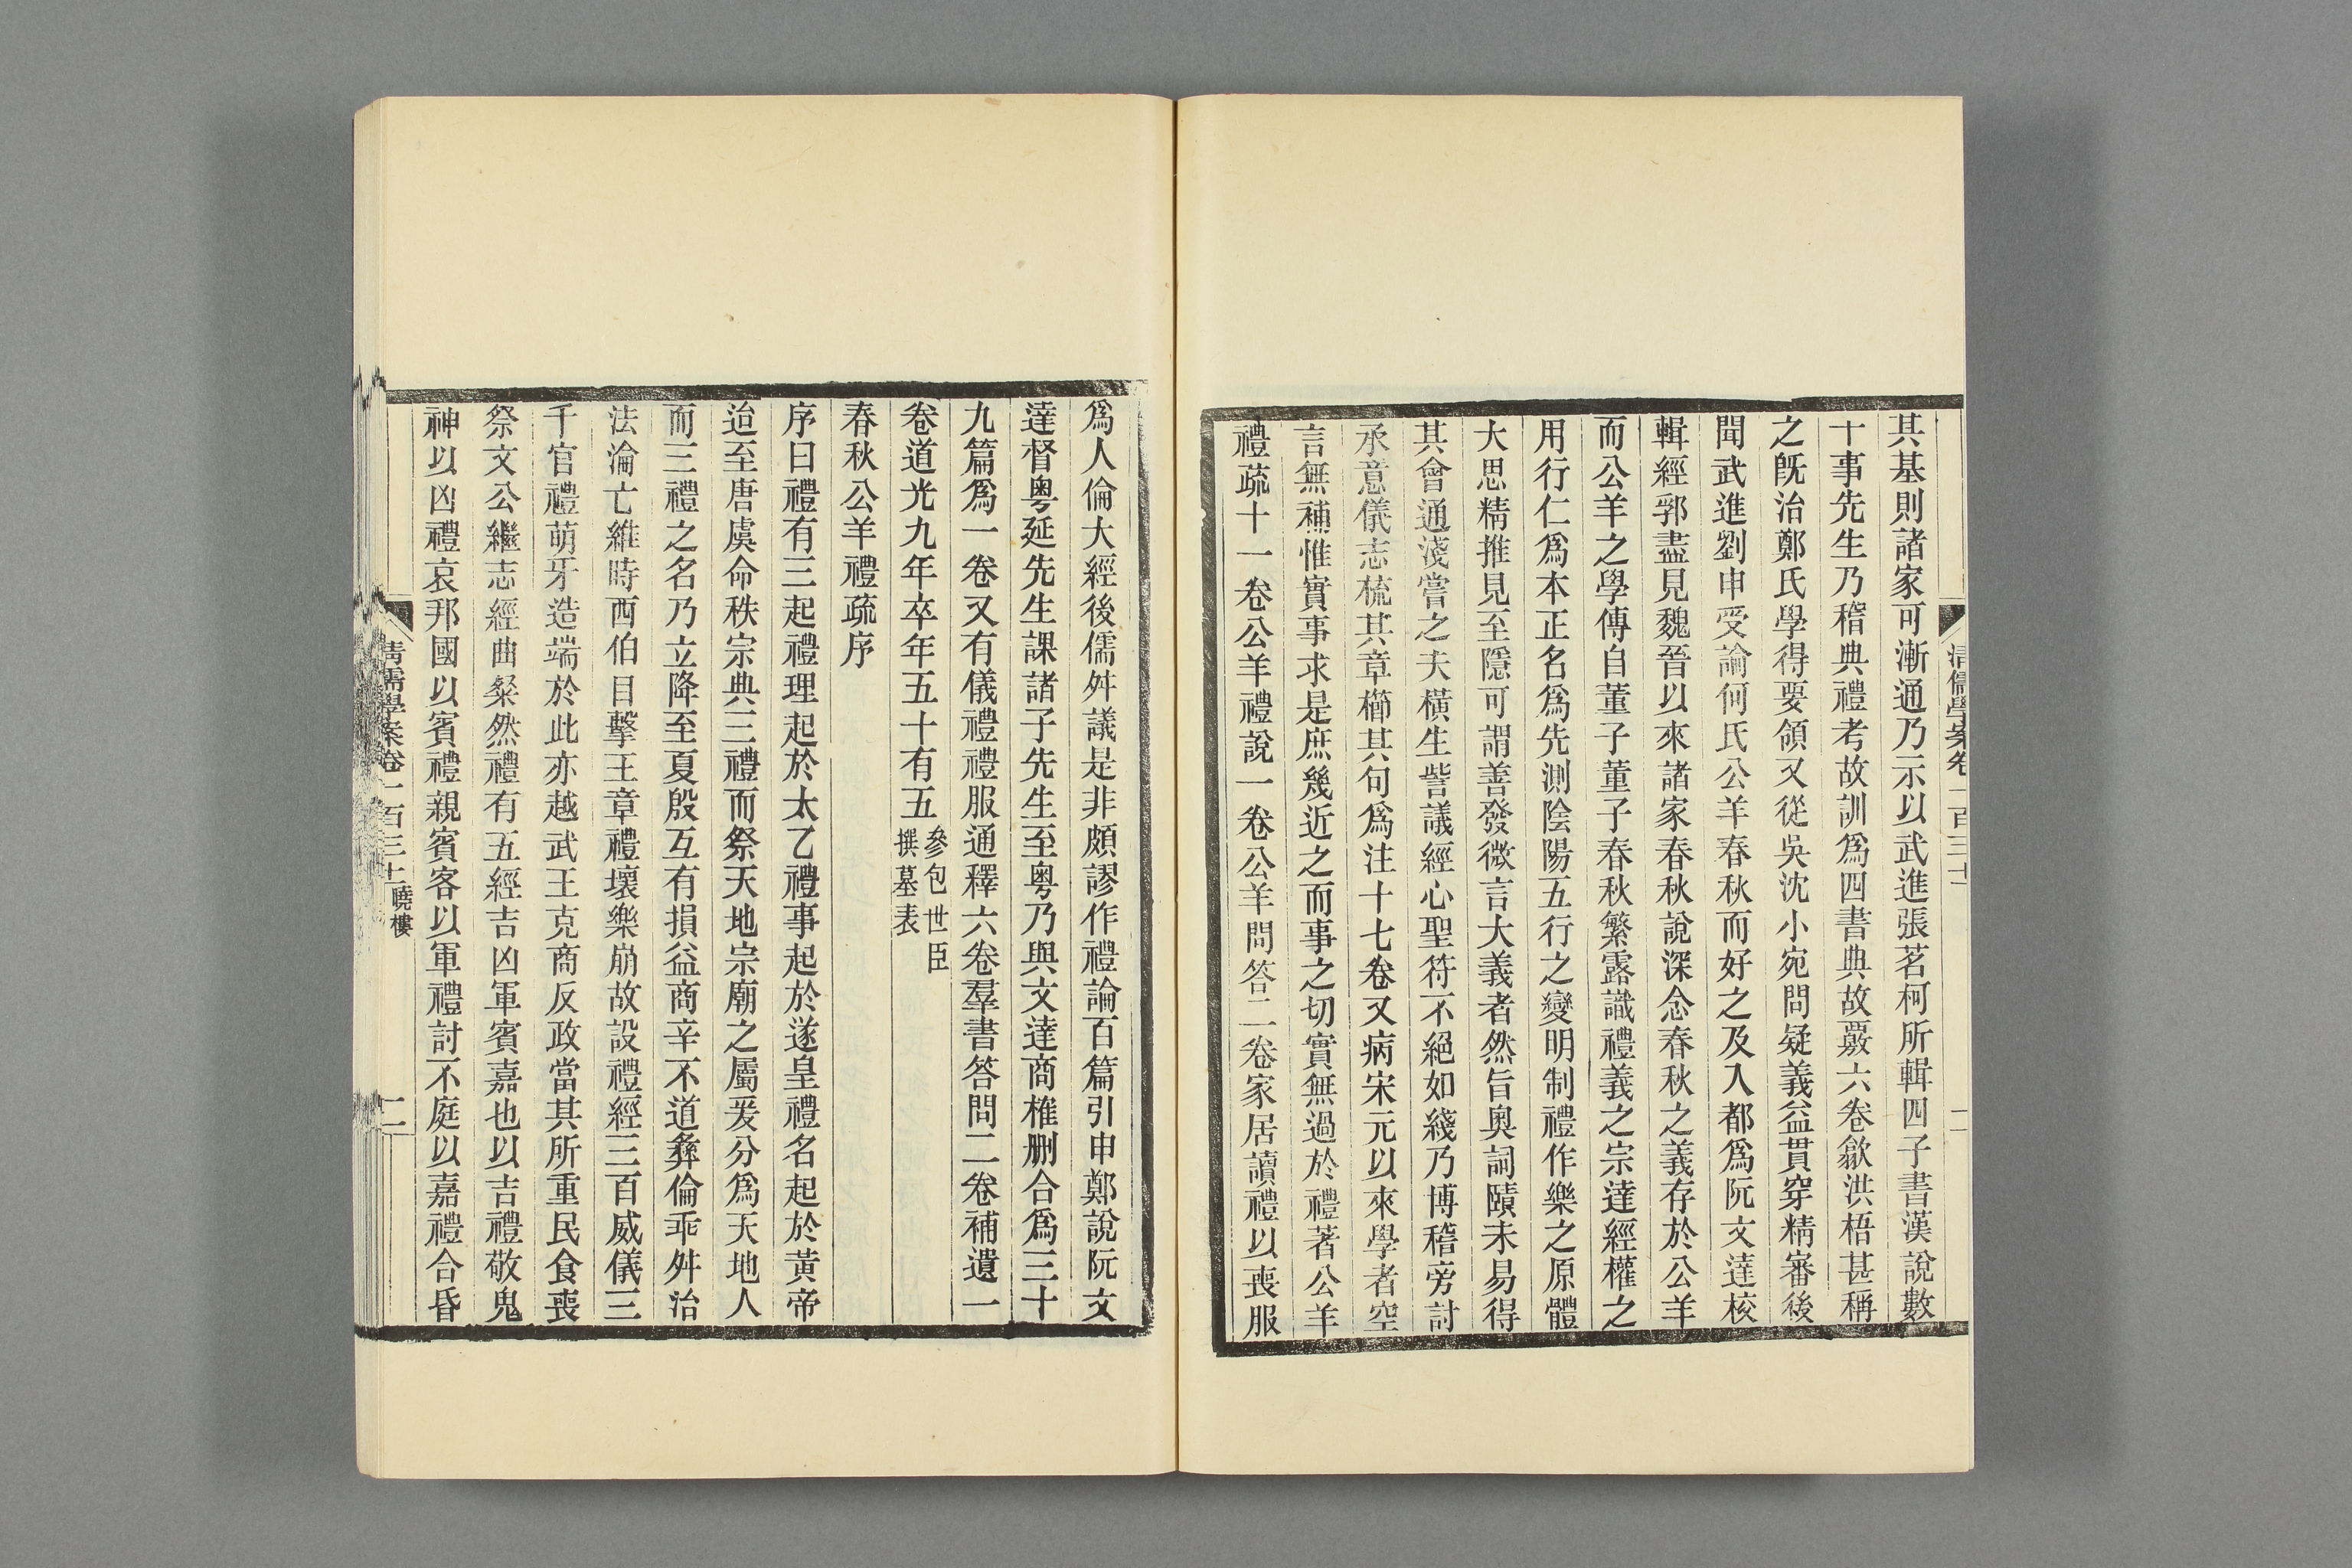 其基則諸家可漸通乃示以武進張茗柯所輯四子書漢說數
十事先生乃稽典禮考故訓爲四書典故覈六卷歙洪梧甚稱
之旣治鄭氏學得要領又從吳沈小宛問疑義益貫穿精審後
聞武進劉申受論何氏公羊春秋而好之及入都爲阮文達校
輯經郛盡見魏晉以來諸家春秋說深念春秋之義存於公羊
而公羊之學傳自董子董子春秋繁露識禮義之宗達經權之
用行仁爲本正名爲先測陰陽五行之變明制禮作樂之原體
大思精推見至隱可謂善發微言大義者然旨奧詞賾未易得
其會通淺嘗之夫橫生訾議經心聖符不絕如綫乃博稽旁討
承意儀志梳其章櫛其句爲注十七卷又病宋元以來學者空
言無補惟實事求是庶幾近之而事之切實無過於禮著公羊
禮疏十一卷公羊禮說一卷公羊問答二卷家居讀禮以喪服
爲人倫大經後儒舛議是非頗謬作禮論百篇引申鄭說阮文
達督粵延先生課諸子先生至粵乃與文達商榷刪合爲三十
九篇爲一卷又有儀禮禮服通釋六卷羣書答問二卷補遺一
卷道光九年卒年五十有五參包世臣
撰墓表
春秋公羊禮疏序
序曰禮有三起禮理起於太乙禮事起於遂皇禮名起於黃帝
迨至唐虞命秩宗典三禮而祭天地宗廟之屬爰分爲天地人
而三禮之名乃立降至夏殷互有損益商辛不道彝倫乖舛治
法淪亡維時西伯目擊王章禮壞樂崩故設禮經三百威儀三
千官禮萌牙造端於此亦越武王克商反政當其所重民食喪
祭文公繼志經曲粲然禮有五經吉凶軍賓嘉也以吉禮敬鬼
神以凶禮哀邦國以賓禮親賓客以軍禮討不庭以嘉禮合昏
清儒學案卷一百三十一曉樓
二